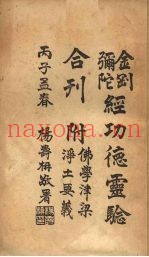 金剛
彌陀
經功德靈驗
合刊 附
佛學津梁
淨土要義
丙子孟春
楊壽枏敬署
nayona.cn